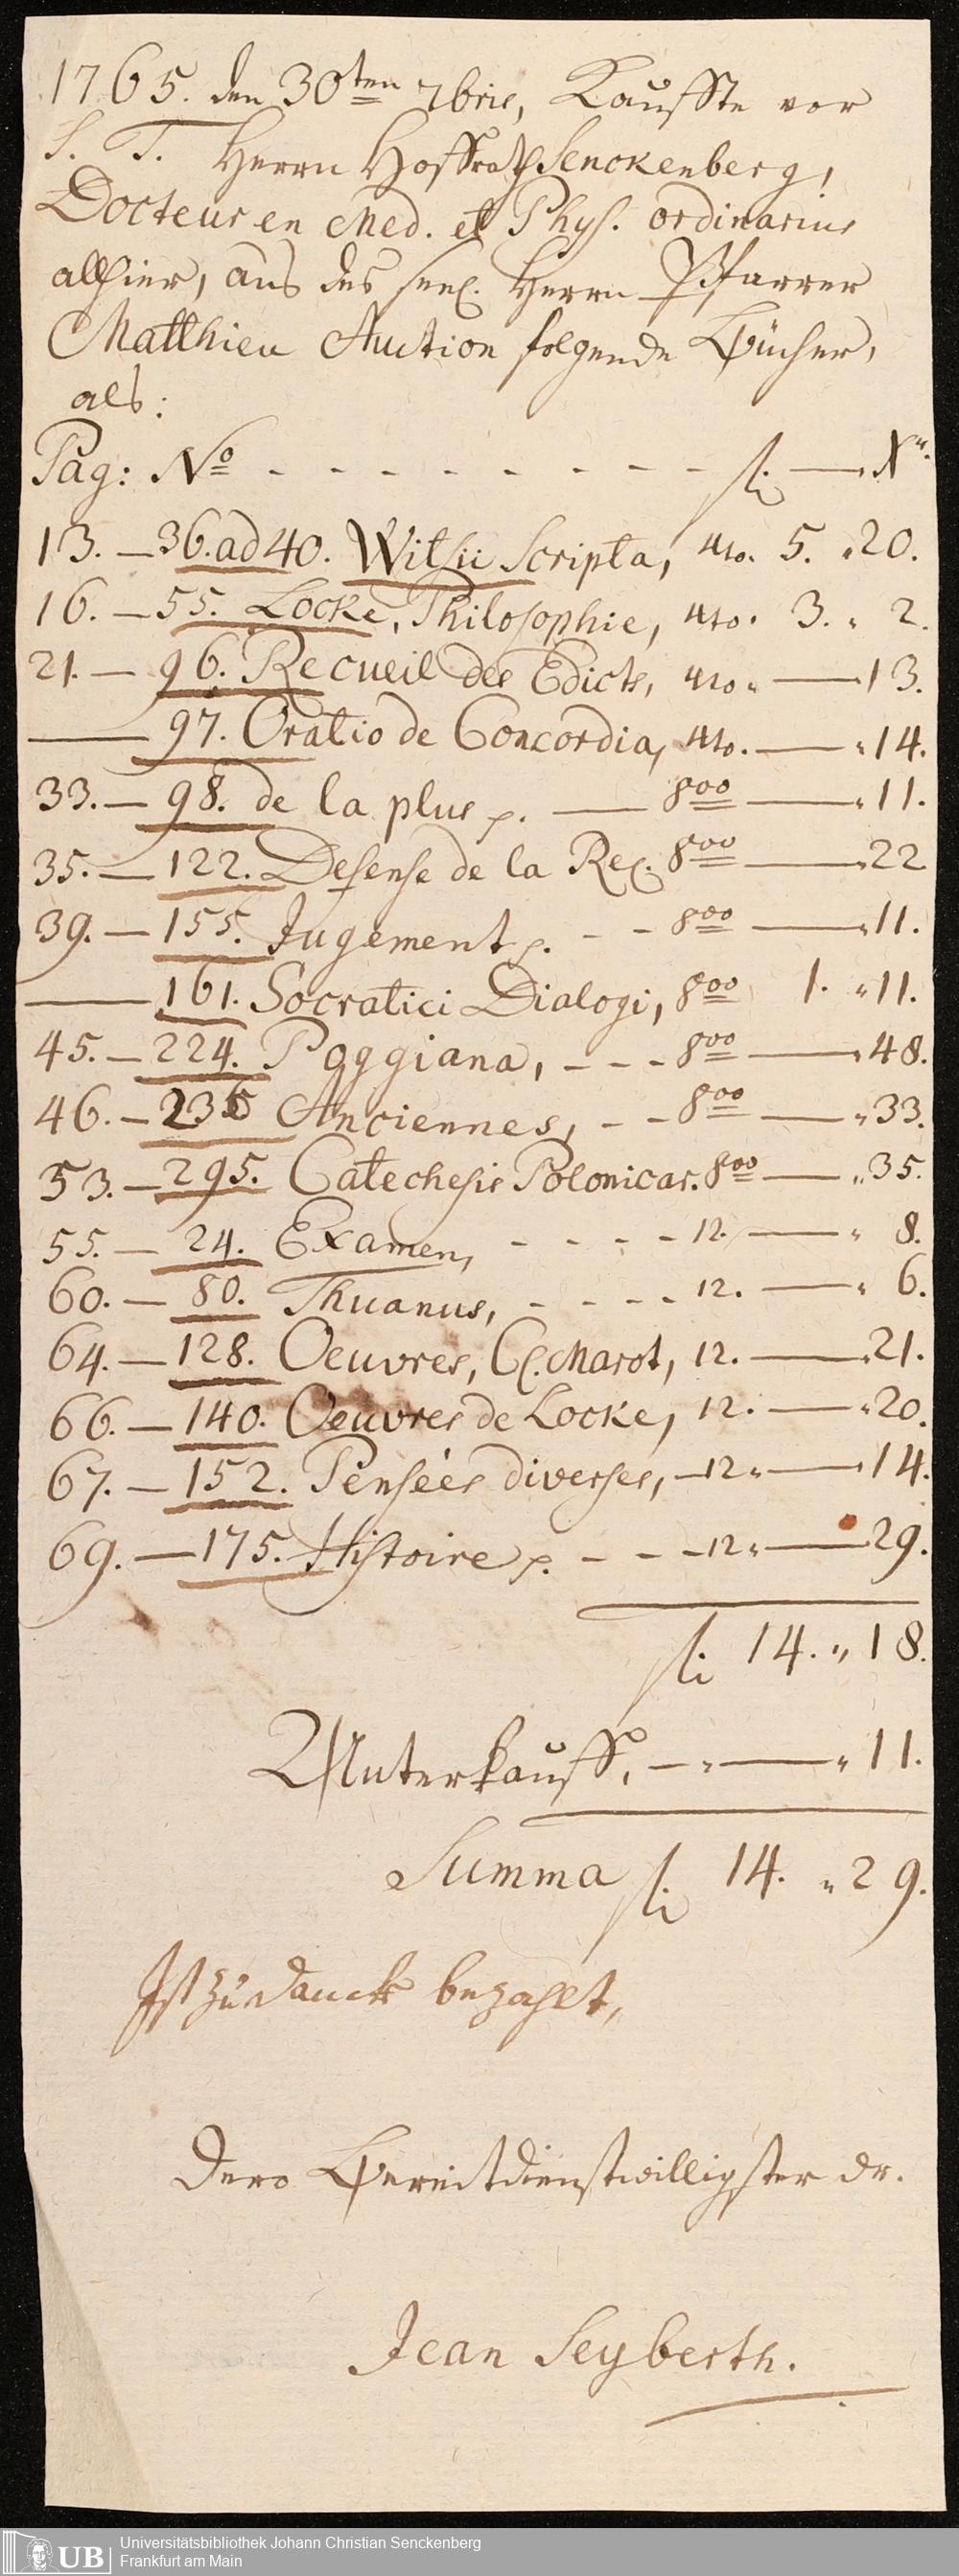 1765. den 30ten 7bris, Kauffte vor
S. T. Herrn Hoffrath Senckenberg,
Docteur en Med. et Phys. ordinarius
allhier, aus des seel. Herrn Pfarrer
Matthieu Auction folgende Bücher,
als:
Pag: No - - - - - - - - - fl. — Xr.
13. — 36. ad 40. Witsii Scripta, 4to. 5. „ 20.
16. — 55. Locke, Philosophie, 4to. 3. „ 2.
21. — 96. Recueil des Edicts, 4to „ — 13.
— 97. Oratio de Concordia, 4to. — „ 14.
33. — 98. de la plus p. — 8oo — „ 11.
35. — 122. Defense de la Rel. 8oo — „ 22
39. — 155. Jugement p. - - 8oo — „ 11.
— 161. Socratici Dialogi, 8oo 1. „ 11.
45. — 224. Poggiana, - - - 8oo — „ 48.
46. — 236 Anciennes, - - 8oo — „ 33.
53. — 295. Catechesis Polonicar. 8oo — „ 35.
55. — 24. Examen, - - - - 12. — „ 8.
60. — 80. Thuanus, - - - - 12. — „ 6.
64. — 128. Oeuvres, Cl. Marot, 12. — „ 21.
66. — 140. Oeuvres de Locke, 12. — „ 20.
67. — 152. Pensées diverses, — 12 „ — 14.
69. — 175. Histoire p. - - - 12 „ — 29.
fl. 14. „ 18.
Unterkauff, — „ — „ 11.
Summa fl. 14. „ 29.
Ist zu Danck bezahlt,
Dero Bereitdienstwilligster Dr.
Jean Seyberth.
UB
Universitätsbibliothek Johann Christian Senckenberg
Frankfurt am Main